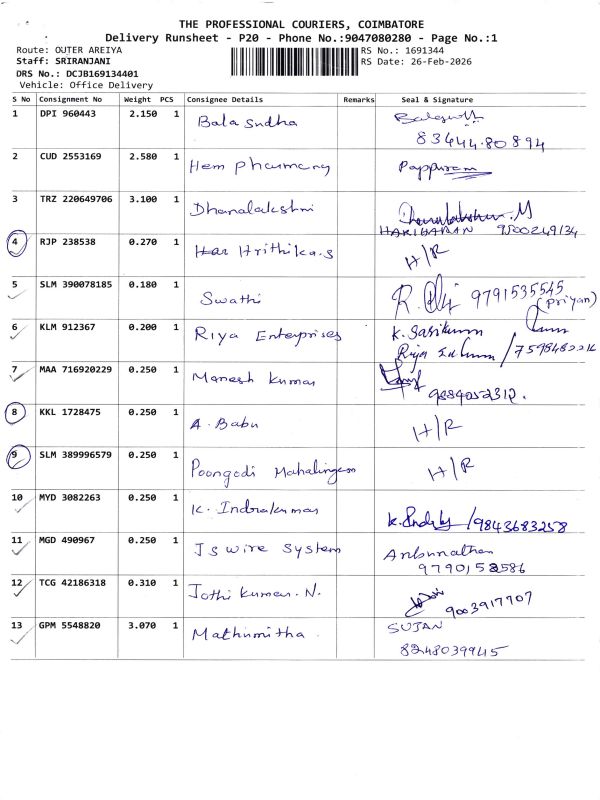 THE PROFESSIONAL COURIERS, COIMBATORE
Delivery Runsheet - P20 - Phone No.:9047080280 - Page No.:1
Route: OUTER AREIYA
RS No.: 1691344
Staff: SRIRANJANI
RS Date: 26-Feb-2026
DRS No.: DCJB169134401
Vehicle: Office Delivery
S No Consignment No Weight PCS Consignee Details Remarks Seal & Signature
1 DPI 960443 2.150 1 Bala Sudha
83444.80894
2 CUD 2553169 2.580 1 Hem pharmacy Pappuram
3 TRZ 220649706 3.100 1 Dhanalakshmi
HARIHARAN 9500249134
4 RJP 238538 0.270 1 Hrithika.S H/R
5 SLM 390078185 0.180 1 Swathi 9791535545
(priyan)
6 KLM 912367 0.200 1 Riya Enterprises K. Sasikumar
7 MAA 716920229 0.250 1 Manesh kumar
9884052312.
8 KKL 1728475 0.250 1 A. Babu H/R
9 SLM 389996579 0.250 1 Poongodi Mahalingam H/R
10 MYD 3082263 0.250 1 K. Indrakumar /9843683258
11 MGD 490967 0.250 1 JS wire System Anbunathan
9790152586
12 TCG 42186318 0.310 1 Jothi kumar. N. 9003917707
13 GPM 5548820 3.070 1 Mathumitha SUJAN
8248039945